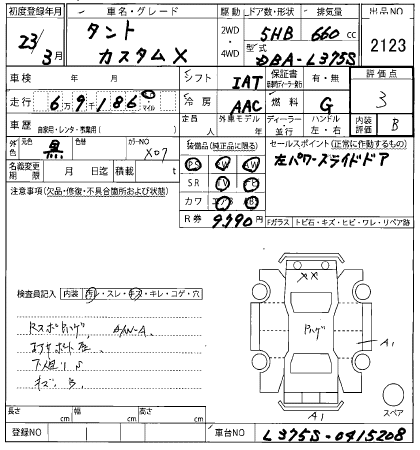 初度登録年月 車名・グレード 駆動 ドア数・形状 排気量 出品NO
23年3月 タント カスタムX 2WD・4WD 5HB 660cc 2123
型式 DBA-L375S
車検 年 月 シフト IAT 保証書 有・無 評価点
走行 6万9千186 マイル 冷房 AAC 燃料 G 3
車歴 自家用・レンタ・事業用( ) 定員 人 外車モデル 年 ディーラー・並行 ハンドル 左・右 内装評価 B
外色 元色 黒 色替 カラーNO X07 装備品(純正品に限る) セールスポイント(正常に作動するもの)
PS SW PW 左パワースライドドア
名義変更期限 月 日迄 積載 t SR TV
注意事項(欠品・修復・不具合箇所および状態) カワ エアB
R券 9990円 Fガラス トビ石・キズ・ヒビ・ワレ・リペア跡
検査員記入 内装 汚レ・スレ・キズ・キレ・コゲ・穴
A1
A1
スペア
長さ cm 幅 cm 高さ cm
登録NO 車台NO L375S-0415208